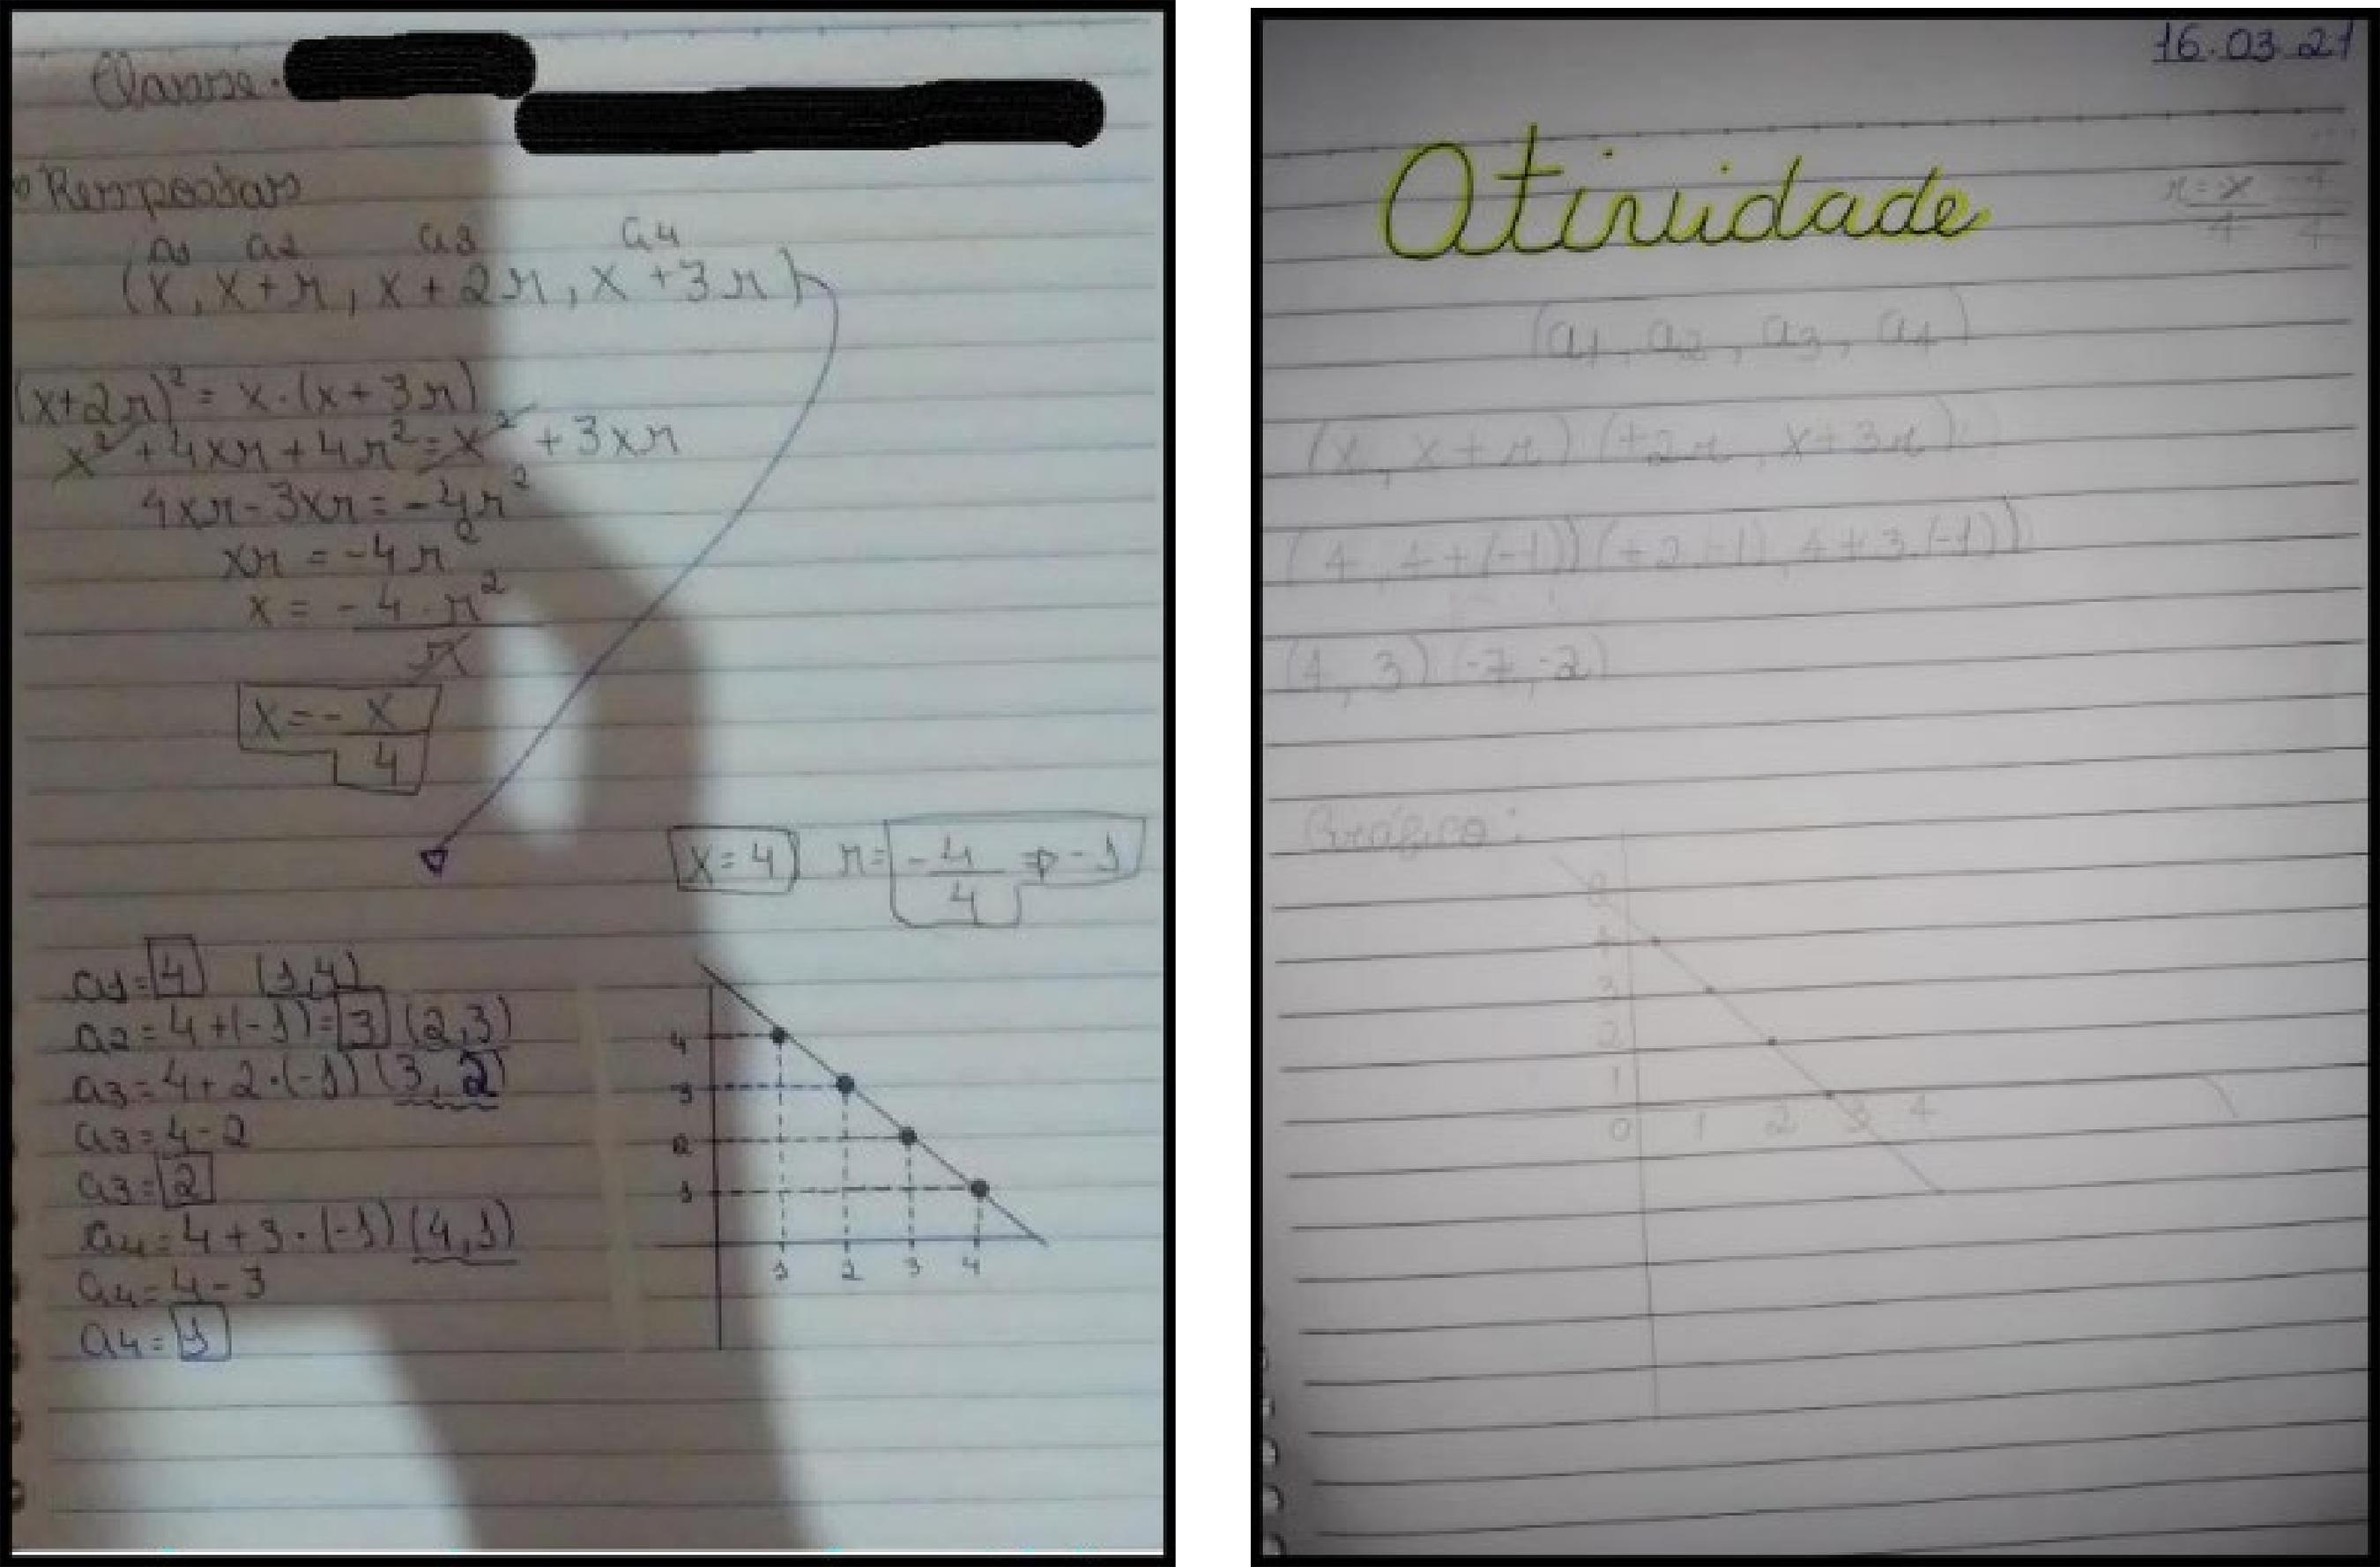 Classe.
Respostas
a1 a2 a3 a4
(x, x+r, x+2r, x+3r)
(x+2r)² = x.(x+3r)
x²+4xr+4r²=x²+3xr
4xr-3xr=-4r²
xr = -4r²
x = -4.r²
r
x=-x
4
x=4 r=-4 ⇒ -1
4
a1=4 (1,4)
a2=4+(-1)=3 (2,3)
a3=4+2.(-1) (3,2)
a3=4-2
a3=2
a4=4+3.(-1) (4,1)
a4=4-3
a4=1
4
3
2
1
1 2 3 4
16.03.21
Atividade
r=-x -4
4 4
(a1, a2, a3, a4)
(x, x+r) (+2r, x+3r)
(4, 4+(-1)) (+2.(-1), 4+3.(-1))
(4, 3) (-7, -2)
Gráfico:
4
3
2
1
0 1 2 3 4